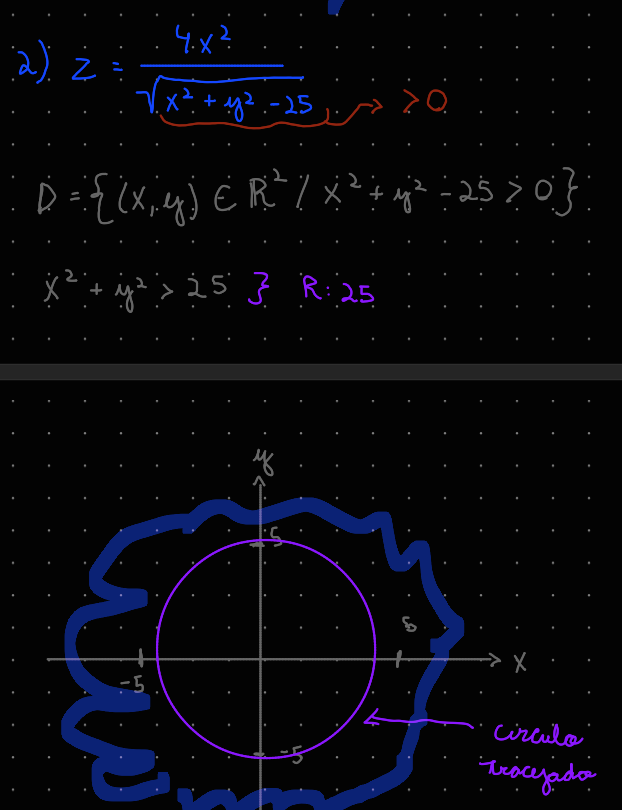 2) Z = 4x² / √(x² + y² - 25) → > 0
D = {(x, y) ∈ ℝ² / x² + y² - 25 > 0}
x² + y² > 25 } R: 25
y
5
5
-5
x
-5
circulo
tracejado